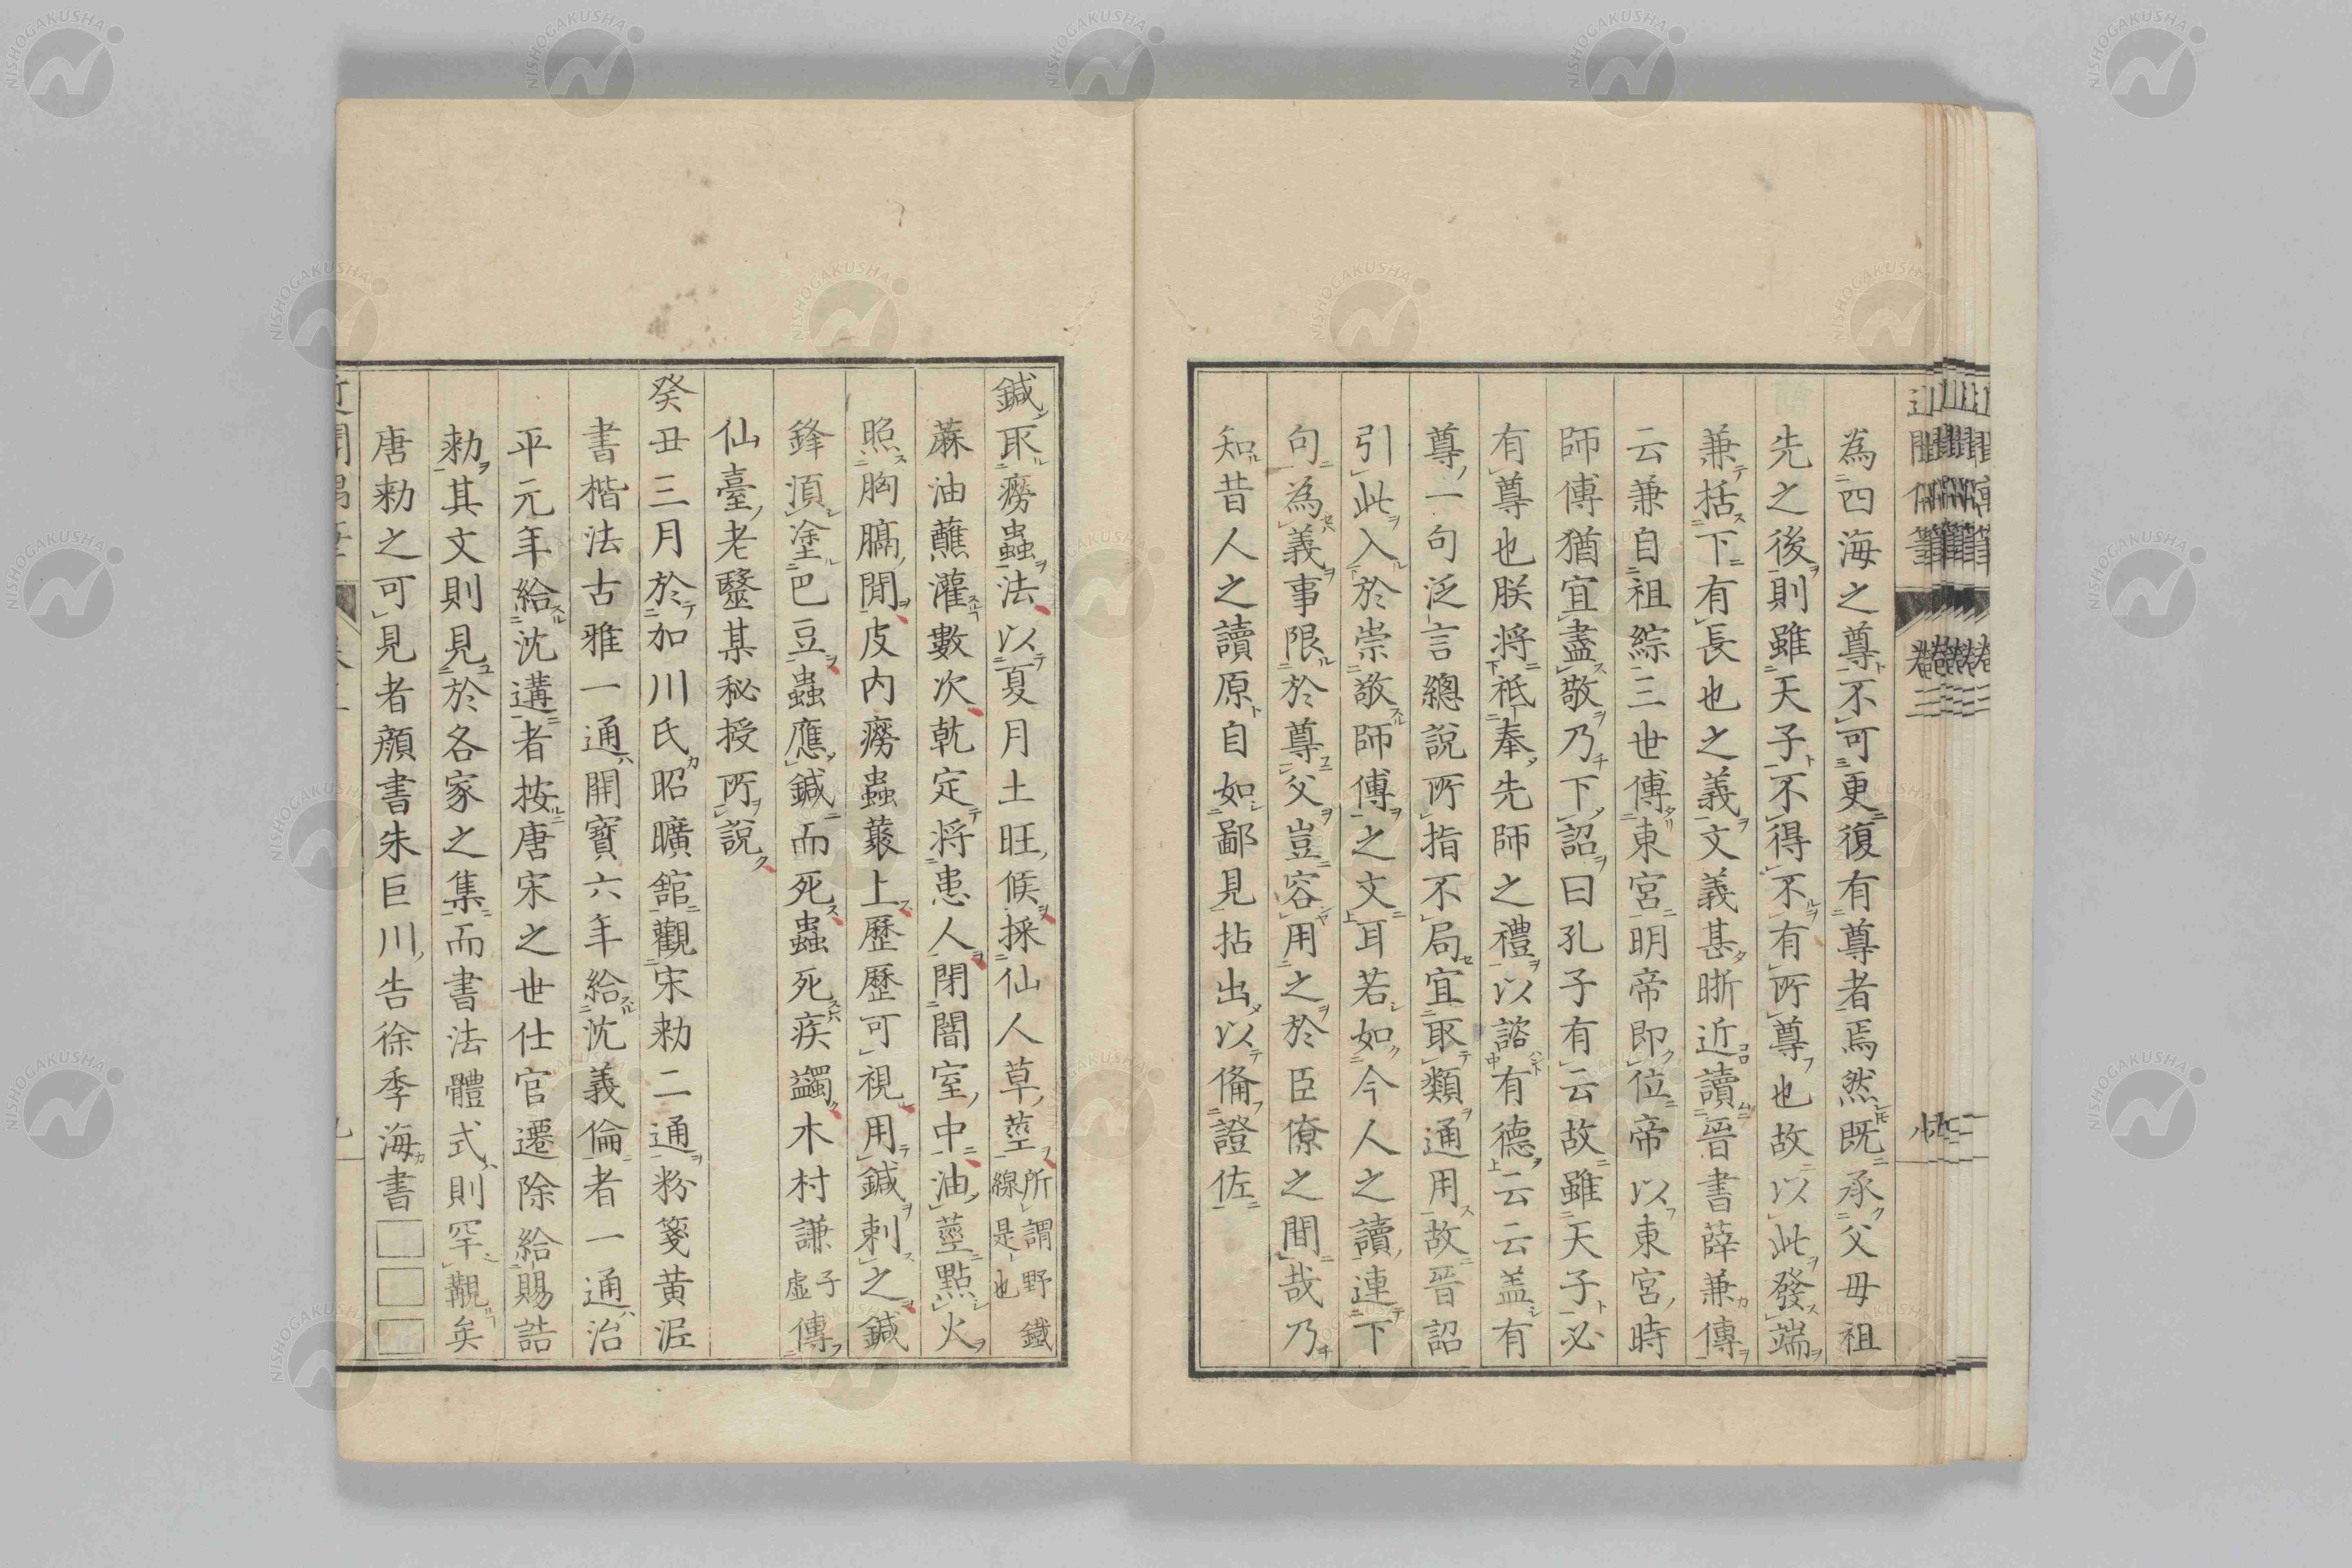 為四海之尊不可更復有尊者焉然既承父母祖
先之後則雖天子不得不有所尊也故以此發端
兼括下有長也之義文義甚晣近讀晉書薛兼傳
云兼自祖綜三世傅東宮明帝即位帝以東宮時
師傅猶宜盡敬乃下詔曰孔子有云故雖天子必
有尊也朕將祗奉先師之禮以諮有德云云盖有
尊一句泛言總說所指不局宜取類通用故晉詔
引此入於崇敬師傅之文耳若如今人之讀連下
句為義事限於尊父豈容用之於臣僚之間哉乃
知昔人之讀原自如鄙見拈出以備證佐
鍼取癆蟲法以夏月土旺候採仙人草莖所謂野鐵線是也
蔴油蘸灌數次乾定將患人閉闇室中油莖點火
照胸膈間皮内癆蟲叢上歷歷可視用鍼刺之鍼
鋒湏塗巴豆蟲應鍼而死蟲死疾蠲木村謙子虚傳
仙臺老毉某秘授所說
癸丑三月於加川氏昭曠舘觀宋勑二通粉箋黄泥
書楷法古雅一通開寶六年給沈義倫者一通治
平元年給沈遘者按唐宋之世仕官遷除給賜誥
勑其文則見於各家之集而書法體式則罕覯矣
唐勑之可見者顔書朱巨川告徐季海書□□□